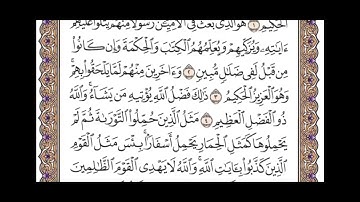 الْحَكِيمِ ١ هُوَ الَّذِي بَعَثَ فِي الْأُمِّيِّينَ رَسُولًا مِّنْهُمْ يَتْلُوا عَلَيْهِمْ
ءَايَٰتِهِۦ وَيُزَكِّيهِمْ وَيُعَلِّمُهُمُ الْكِتَٰبَ وَالْحِكْمَةَ وَإِن كَانُوا
مِن قَبْلُ لَفِي ضَلَٰلٍ مُّبِينٍ ٢ وَءَاخَرِينَ مِنْهُمْ لَمَّا يَلْحَقُوا بِهِمْ
وَهُوَ الْعَزِيزُ الْحَكِيمُ ٣ ذَٰلِكَ فَضْلُ اللَّهِ يُؤْتِيهِ مَن يَشَاءُ وَاللَّهُ
ذُو الْفَضْلِ الْعَظِيمِ ٤ مَثَلُ الَّذِينَ حُمِّلُوا التَّوْرَىٰةَ ثُمَّ لَمْ
يَحْمِلُوهَا كَمَثَلِ الْحِمَارِ يَحْمِلُ أَسْفَارًا بِئْسَ مَثَلُ الْقَوْمِ
الَّذِينَ كَذَّبُوا بِـَٔايَٰتِ اللَّهِ وَاللَّهُ لَا يَهْدِي الْقَوْمَ الظَّٰلِمِينَ